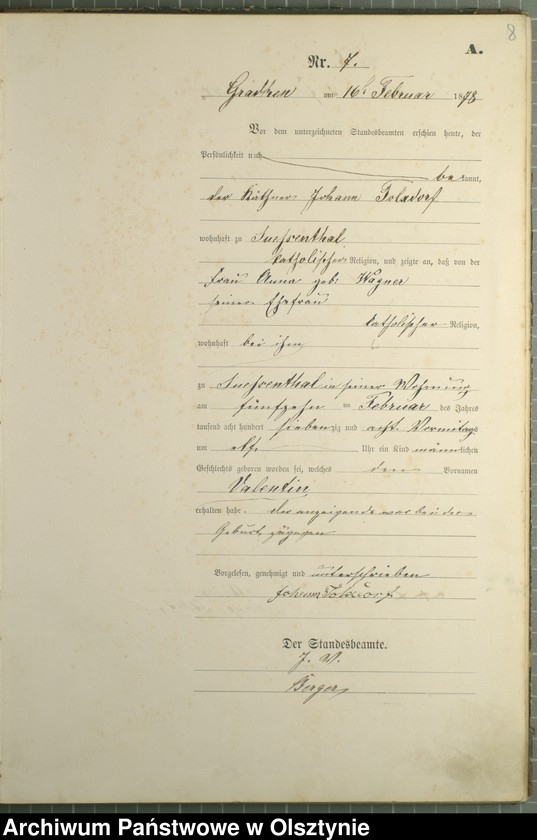 8
A.
Nr. 7.
am 16t Februar 1878
Vor dem unterzeichneten Standesbeamten erschien heute, der
Persönlichkeit nach
bekannt,
der Käthner Johann
wohnhaft zu
katholischer Religion, und zeigte an, daß von der
Frau Anna geb. Wagner
seiner Ehefrau
katholischer Religion,
wohnhaft bei ihm
zu in seiner Wohnung
am fünfzehn Februar des Jahres
tausend acht hundert siebenzig und acht Vormittags
um elf Uhr ein Kind männlichen
Geschlechts geboren worden sei, welches den Vornamen
Valentin
erhalten habe. der anzeigende war bei der
Geburt zugegen
Vorgelesen, genehmigt und unterschrieben
Johann
Der Standesbeamte.
J. V.
Berger
Archiwum Państwowe w Olsztynie